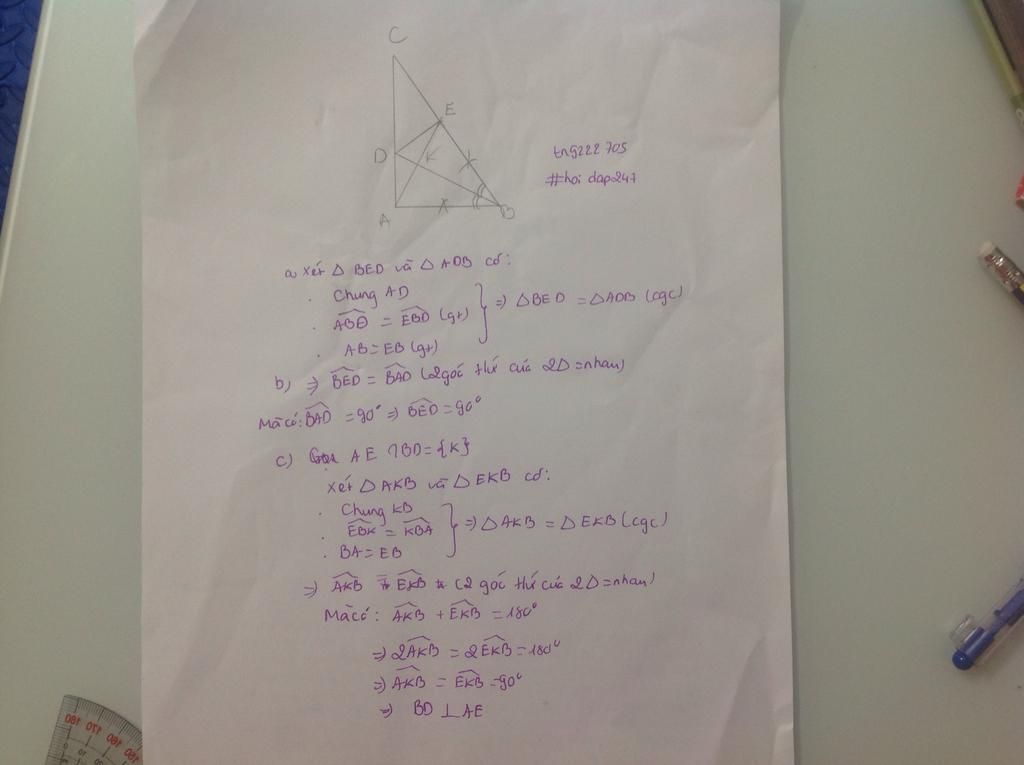 C
E
D
K
A
B
tng222705
#hoi dap247
a, Xét △ BED và △ ADB có:
. Chung AD
. ABD = EBD (gt)
. AB = EB (gt)
} ⇒ △BED = △ADB (cgc)
b) ⇒ BED = BAD (2 góc t/ứ của 2△ = nhau)
Mà có: BAD = 90° ⇒ BED = 90°
c) Gọi AE ∩ BD = {K}
Xét △ AKB và △ EKB có:
. Chung KB
. EBK = KBA
. BA = EB
} ⇒ △ AKB = △ EKB (cgc)
⇒ AKB = EKB (2 góc t/ứ của 2△ = nhau)
Mà có: AKB + EKB = 180°
⇒ 2AKB = 2EKB = 180°
⇒ AKB = EKB = 90°
⇒ BD ⊥ AE
180 170 160
0 10